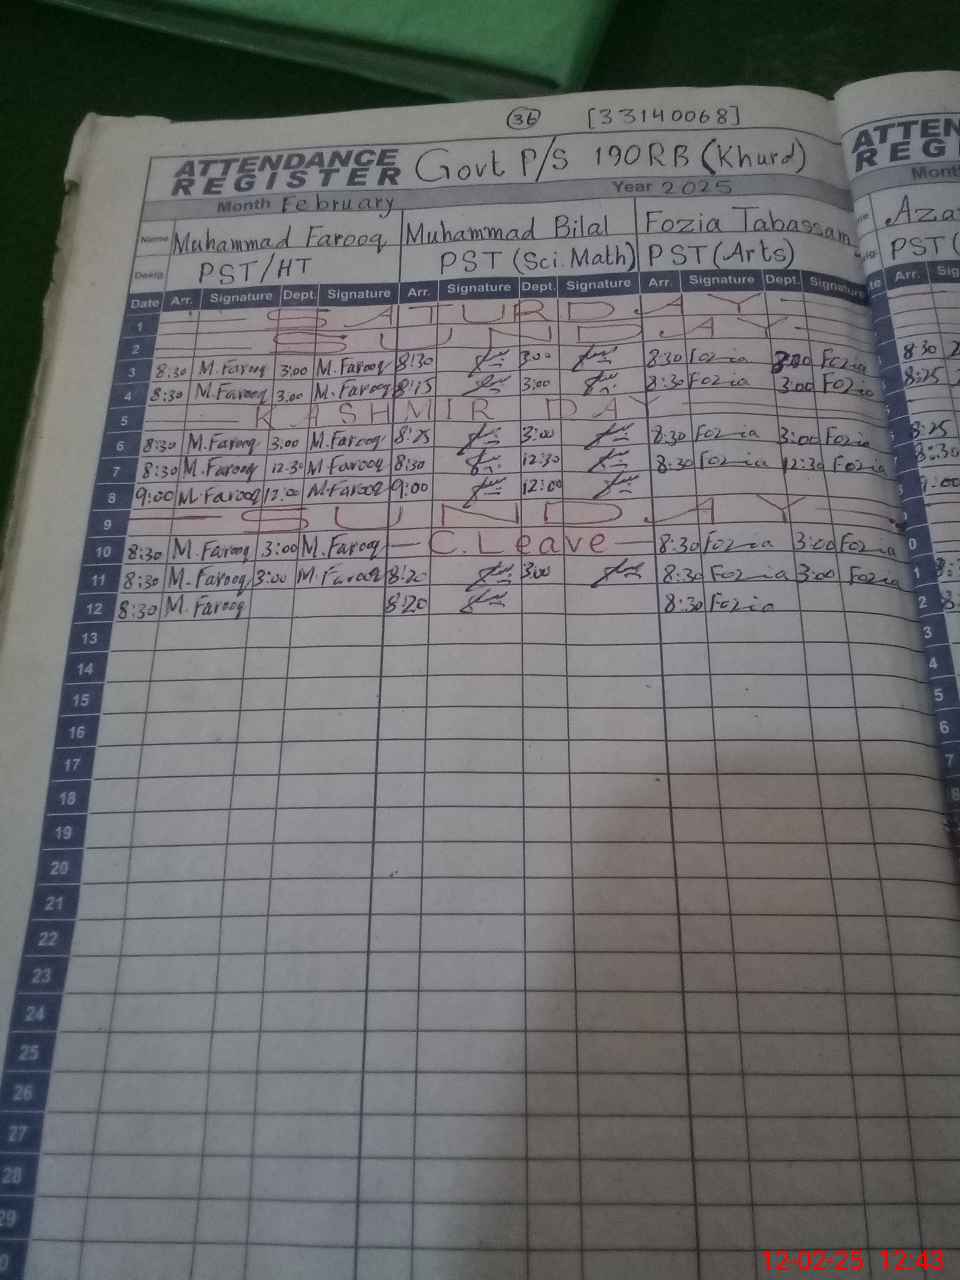 36 [33140068]
ATTENDANCE REGISTER Govt P/S 190RB (Khurd)
Month February Year 2025
Name Muhammad Farooq Muhammad Bilal Fozia Tabassam
Desig. PST/HT PST (Sci. Math) PST (Arts)
Date Arr. Signature Dept. Signature Arr. Signature Dept. Signature Arr. Signature Dept. Signature
1 SATURDAY
2 SUNDAY
3 8:30 M. Farooq 3:00 M. Farooq 8:30 3:00 8:30 Fozia 3:00 Fozia
4 8:30 M. Farooq 3:00 M. Farooq 8:15 3:00 8:30 Fozia 3:00 Fozia
5 KASHMIR DAY
6 8:30 M. Farooq 3:00 M. Farooq 8:25 3:00 8:30 Fozia 3:00 Fozia
7 8:30 M. Farooq 12:30 M Farooq 8:30 12:30 8:30 Fozia 12:30 Fozia
8 9:00 M. Farooq 12:00 M. Farooq 9:00 12:00
9 SUNDAY
10 8:30 M. Farooq 3:00 M. Farooq C. Leave 8:30 Fozia 3:00 Fozia
11 8:30 M. Farooq 3:00 M. Farooq 8:20 3:00 8:30 Fozia 3:00 Fozia
12 8:30 M. Farooq 8:20 8:30 Fozia
13
14
15
16
17
18
19
20
21
22
23
24
25
26
27
28
29
ATTEN
REG
Mont
Aza
PST (
Arr. Sig
8:30
8:25
8:25
8:30
9:00
12-02-25 12:43